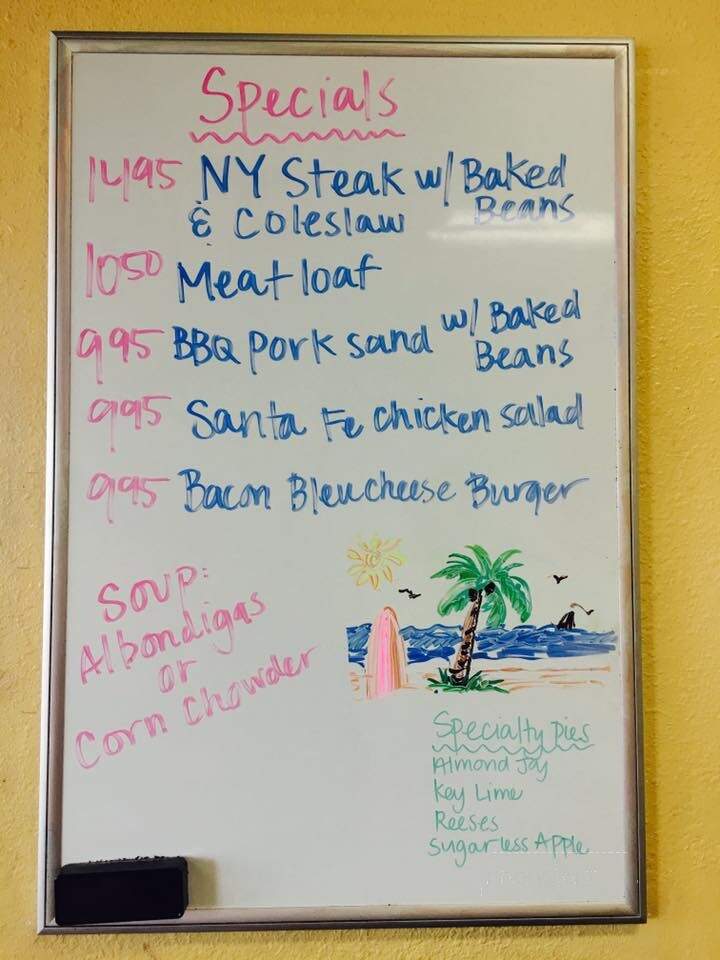 Specials
1495 NY Steak w/ Baked Beans
& Coleslaw
1050 Meatloaf
995 BBQ Pork sand w/ Baked Beans
995 Santa Fe chicken salad
995 Bacon Bleucheese Burger
Soup:
Albondigas
or
Corn Chowder
Specialty Pies
Almond Joy
Key Lime
Reeses
Sugarless Apple